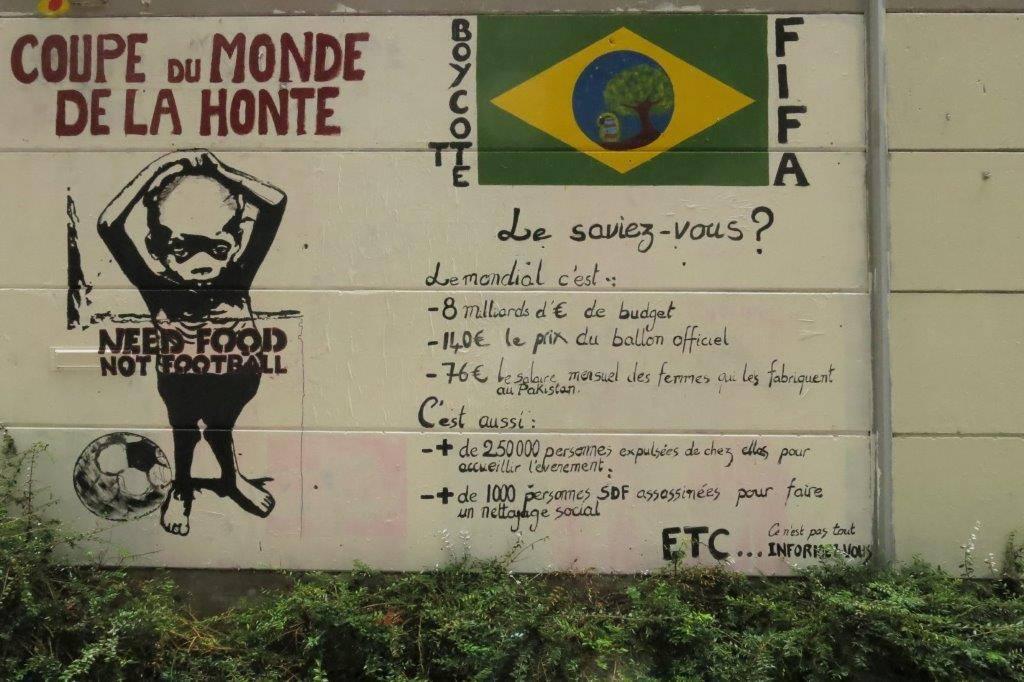 COUPE DU MONDE
DE LA HONTE
BOYCOTTE
FIFA
NEED FOOD
NOT FOOTBALL
Le saviez-vous?
Le mondial c'est :
-8 milliards d'€ de budget
-140€ le prix du ballon officiel
-76€ le salaire mensuel des femmes qui les fabriquent
au Pakistan.
C'est aussi :
-+ de 250000 personnes expulsées de chez elles pour
accueillir l'évenement.
-+ de 1000 personnes SDF assassinées pour faire
un nettoyage social
ETC... Ce n'est pas tout
INFORMEZ-VOUS